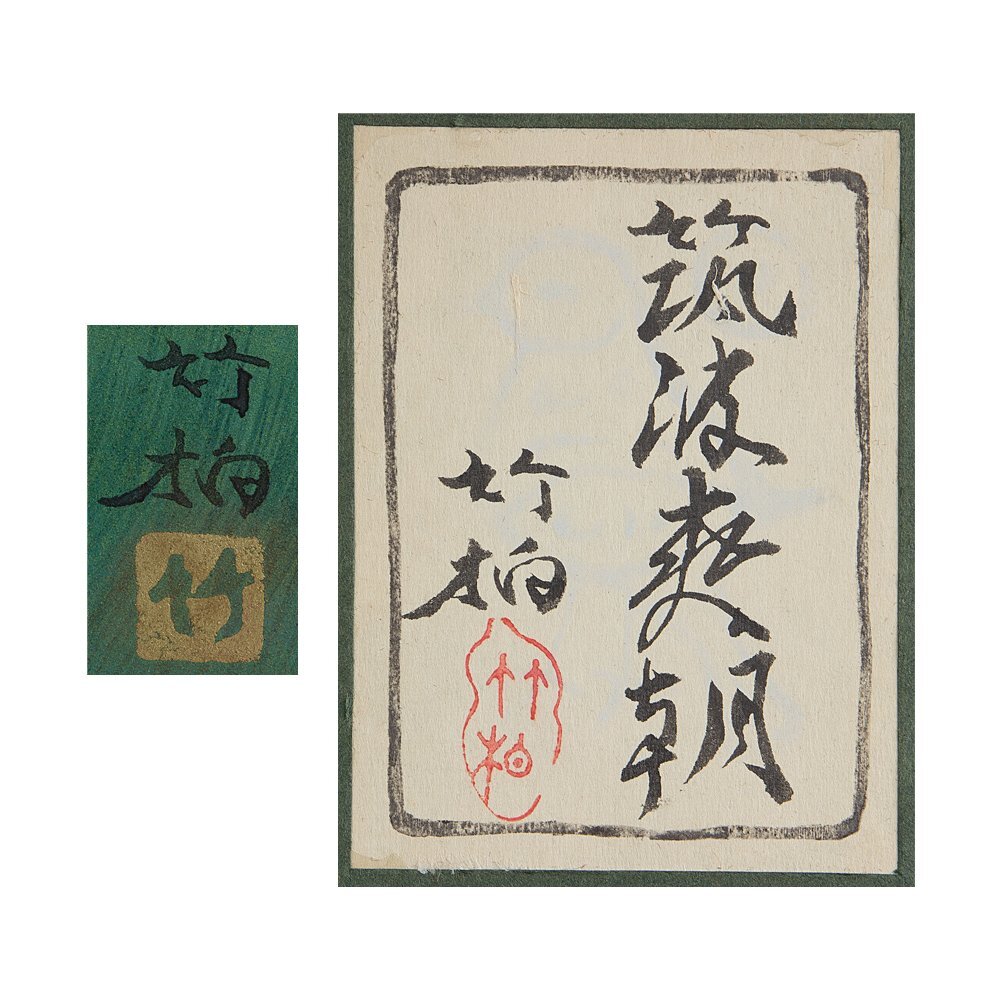 竹柏
竹
筑波爽朝
竹柏
竹柏